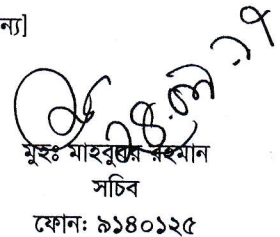 ন্য]
মুহঃ মাহবুবুর রহমান
সচিব
ফোন: ৯১৪০১২৫